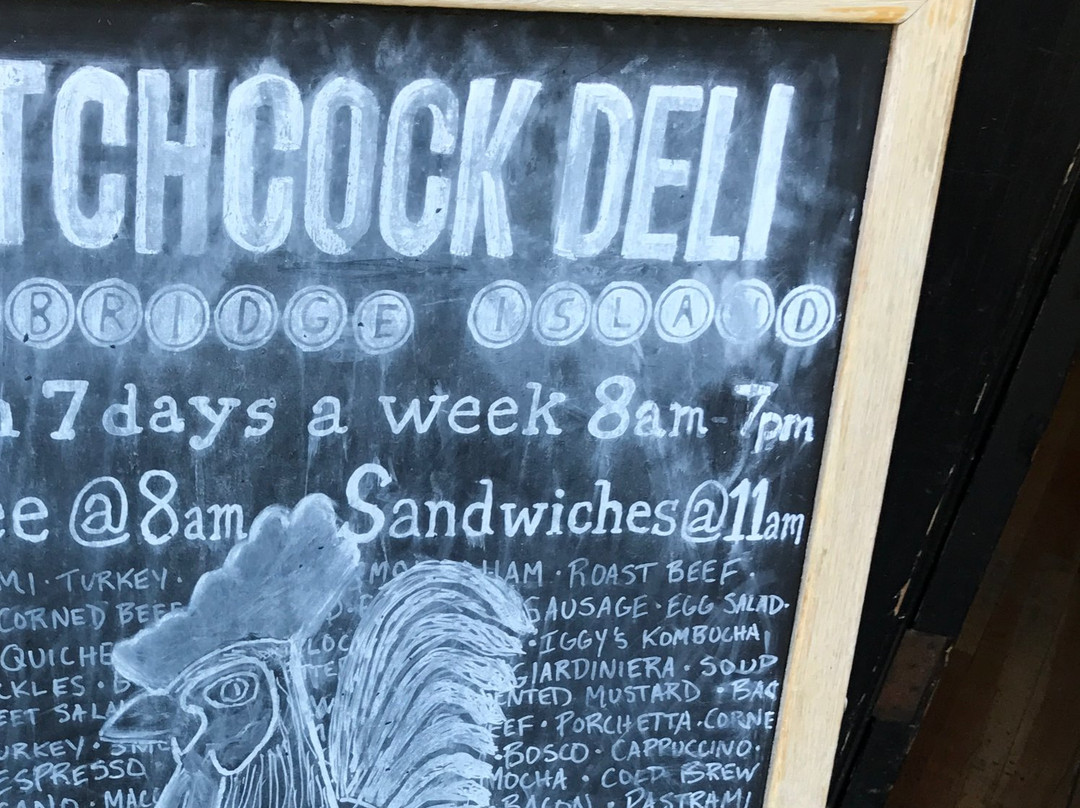 TCHCOCK DELI
BRIDGE ISLAND
7 days a week 8am-7pm
ee @8am Sandwiches@11am
MI · TURKEY · HAM · ROAST BEEF ·
CORNED BEEF SAUSAGE · EGG SALAD ·
QUICHE LOC · IGGY's KOMBUCHA
CKLES · GIARDINIERA · SOUP
EET SALA ENTED MUSTARD · BAC
EEF · PORCHETTA · CORNE
URKEY · BOSCO · CAPPUCCINO ·
ESPRESSO MOCHA · COLD BREW
BACON · PASTRAMI